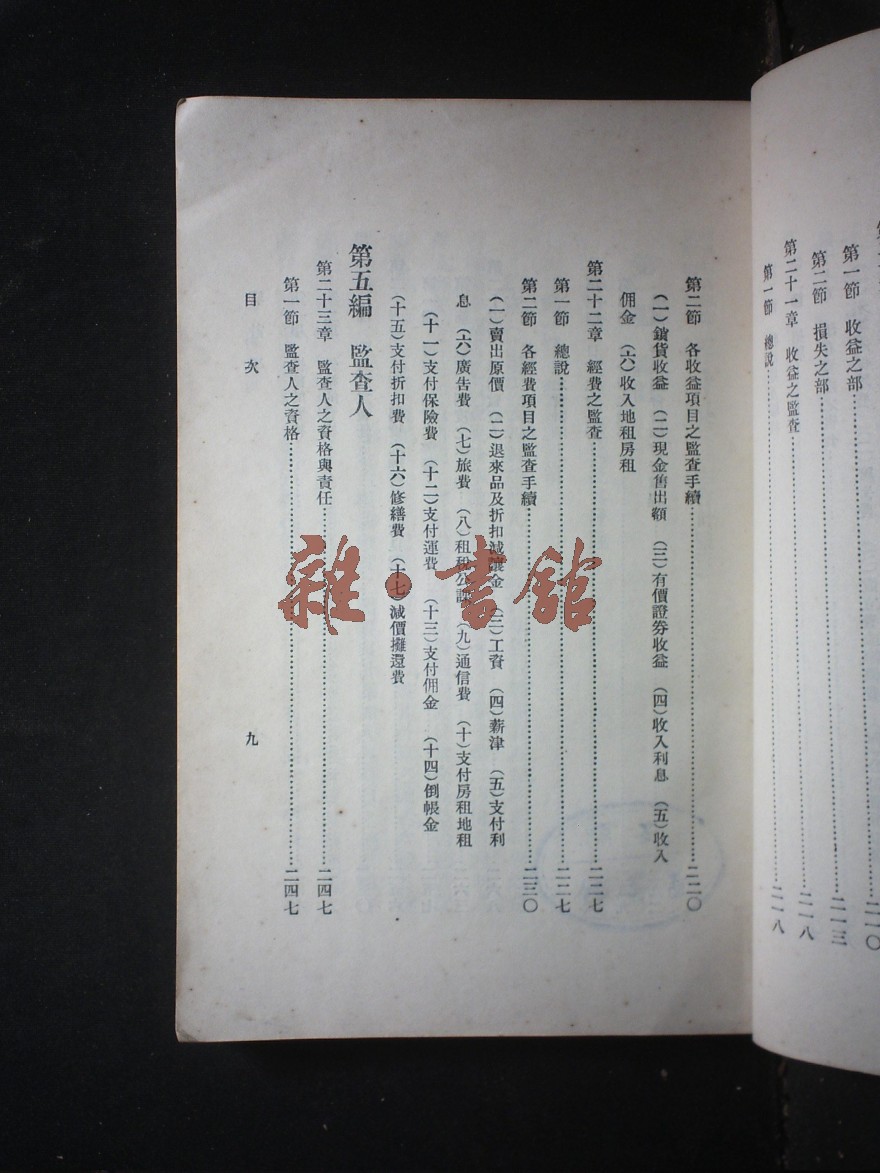 第一節　收益之部……二一〇
第二節　損失之部……二一三
第二十一章　收益之監查……二一八
第一節　總說……二一八
第二節　各收益項目之監查手續……二二〇
（一）銷貨收益　（二）現金售出額　（三）有價證券收益　（四）收入利息　（五）收入
佣金　（六）收入地租房租
第二十二章　經費之監查……二二七
第一節　總說……二二七
第二節　各經費項目之監查手續……二三〇
（一）賣出原價　（二）退來品及折扣減讓金　（三）工資　（四）薪津　（五）支付利
息　（六）廣告費　（七）旅費　（八）租稅公課　（九）通信費　（十）支付房租地租
（十一）支付保險費　（十二）支付運費　（十三）支付佣金　（十四）倒帳金
（十五）支付折扣費　（十六）修繕費　（十七）減價攤還費
第五編　監查人
第二十三章　監查人之資格與責任……二四七
第一節　監查人之資格……二四七
目次
九
雜·書館